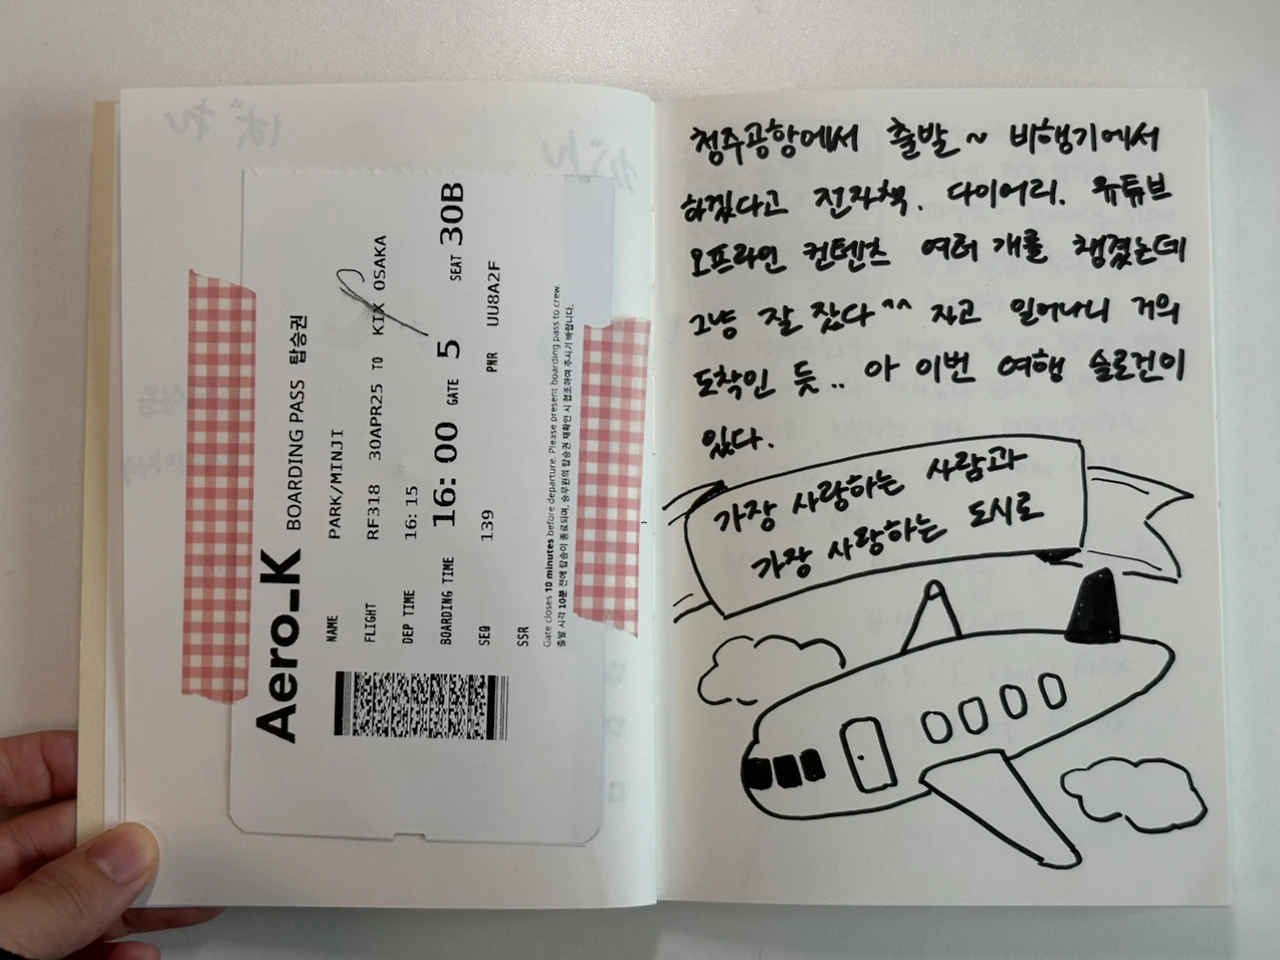 Aero_K BOARDING PASS 탑승권
NAME PARK/MINJI
FLIGHT RF318 30APR25 TO KIX OSAKA
DEP TIME 16:15
BOARDING TIME 16:00 GATE 5 SEAT 30B
SEQ 139 PNR UU8A2F
SSR
Gate closes 10 minutes before departure. Please present boarding pass to crew.
출발 시각 10분 전에 탑승이 종료되며, 승무원의 탑승권 재확인 시 협조하여 주시기 바랍니다.
청주공항에서 출발~ 비행기에서
하겠다고 전자책, 다이어리, 유튜브
오프라인 컨텐츠 여러 개를 챙겼는데
그냥 잘 잤다^^ 자고 일어나니 거의
도착인 듯.. 아 이번 여행 슬로건이
있다.
가장 사랑하는 사람과
가장 사랑하는 도시로